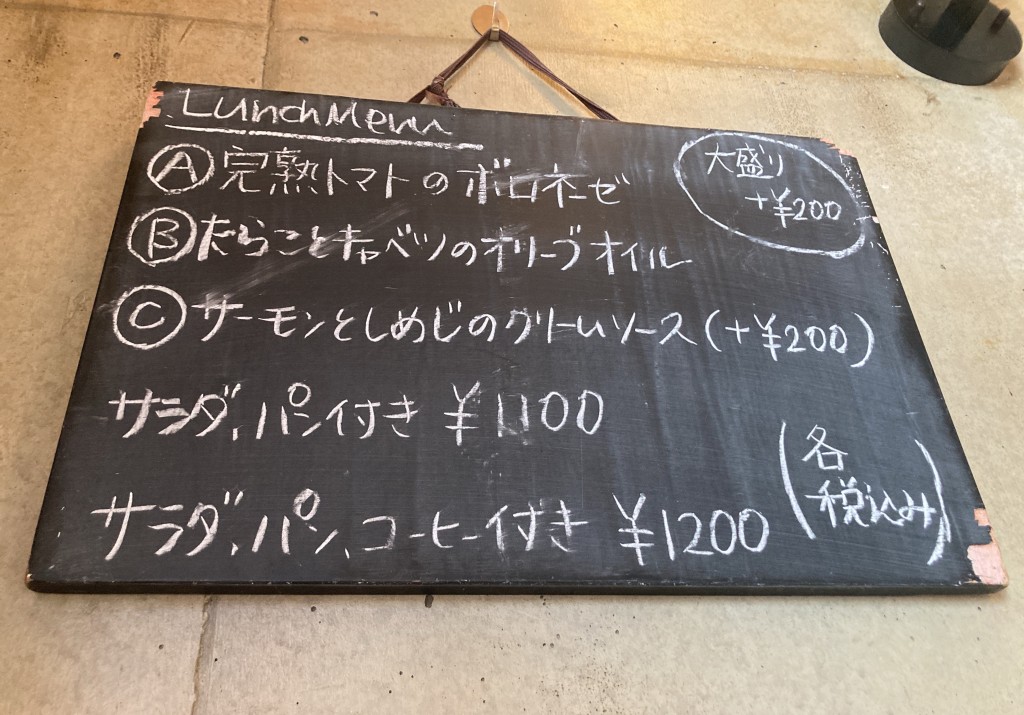 Lunch Menu
Ⓐ完熟トマトのボロネーゼ
大盛り
+¥200
Ⓑたらことキャベツのオリーブオイル
Ⓒサーモンとしめじのクリームソース(+¥200)
サラダ、パン付き ¥1100
サラダ、パン、コーヒー付き ¥1200
(各
税込み)